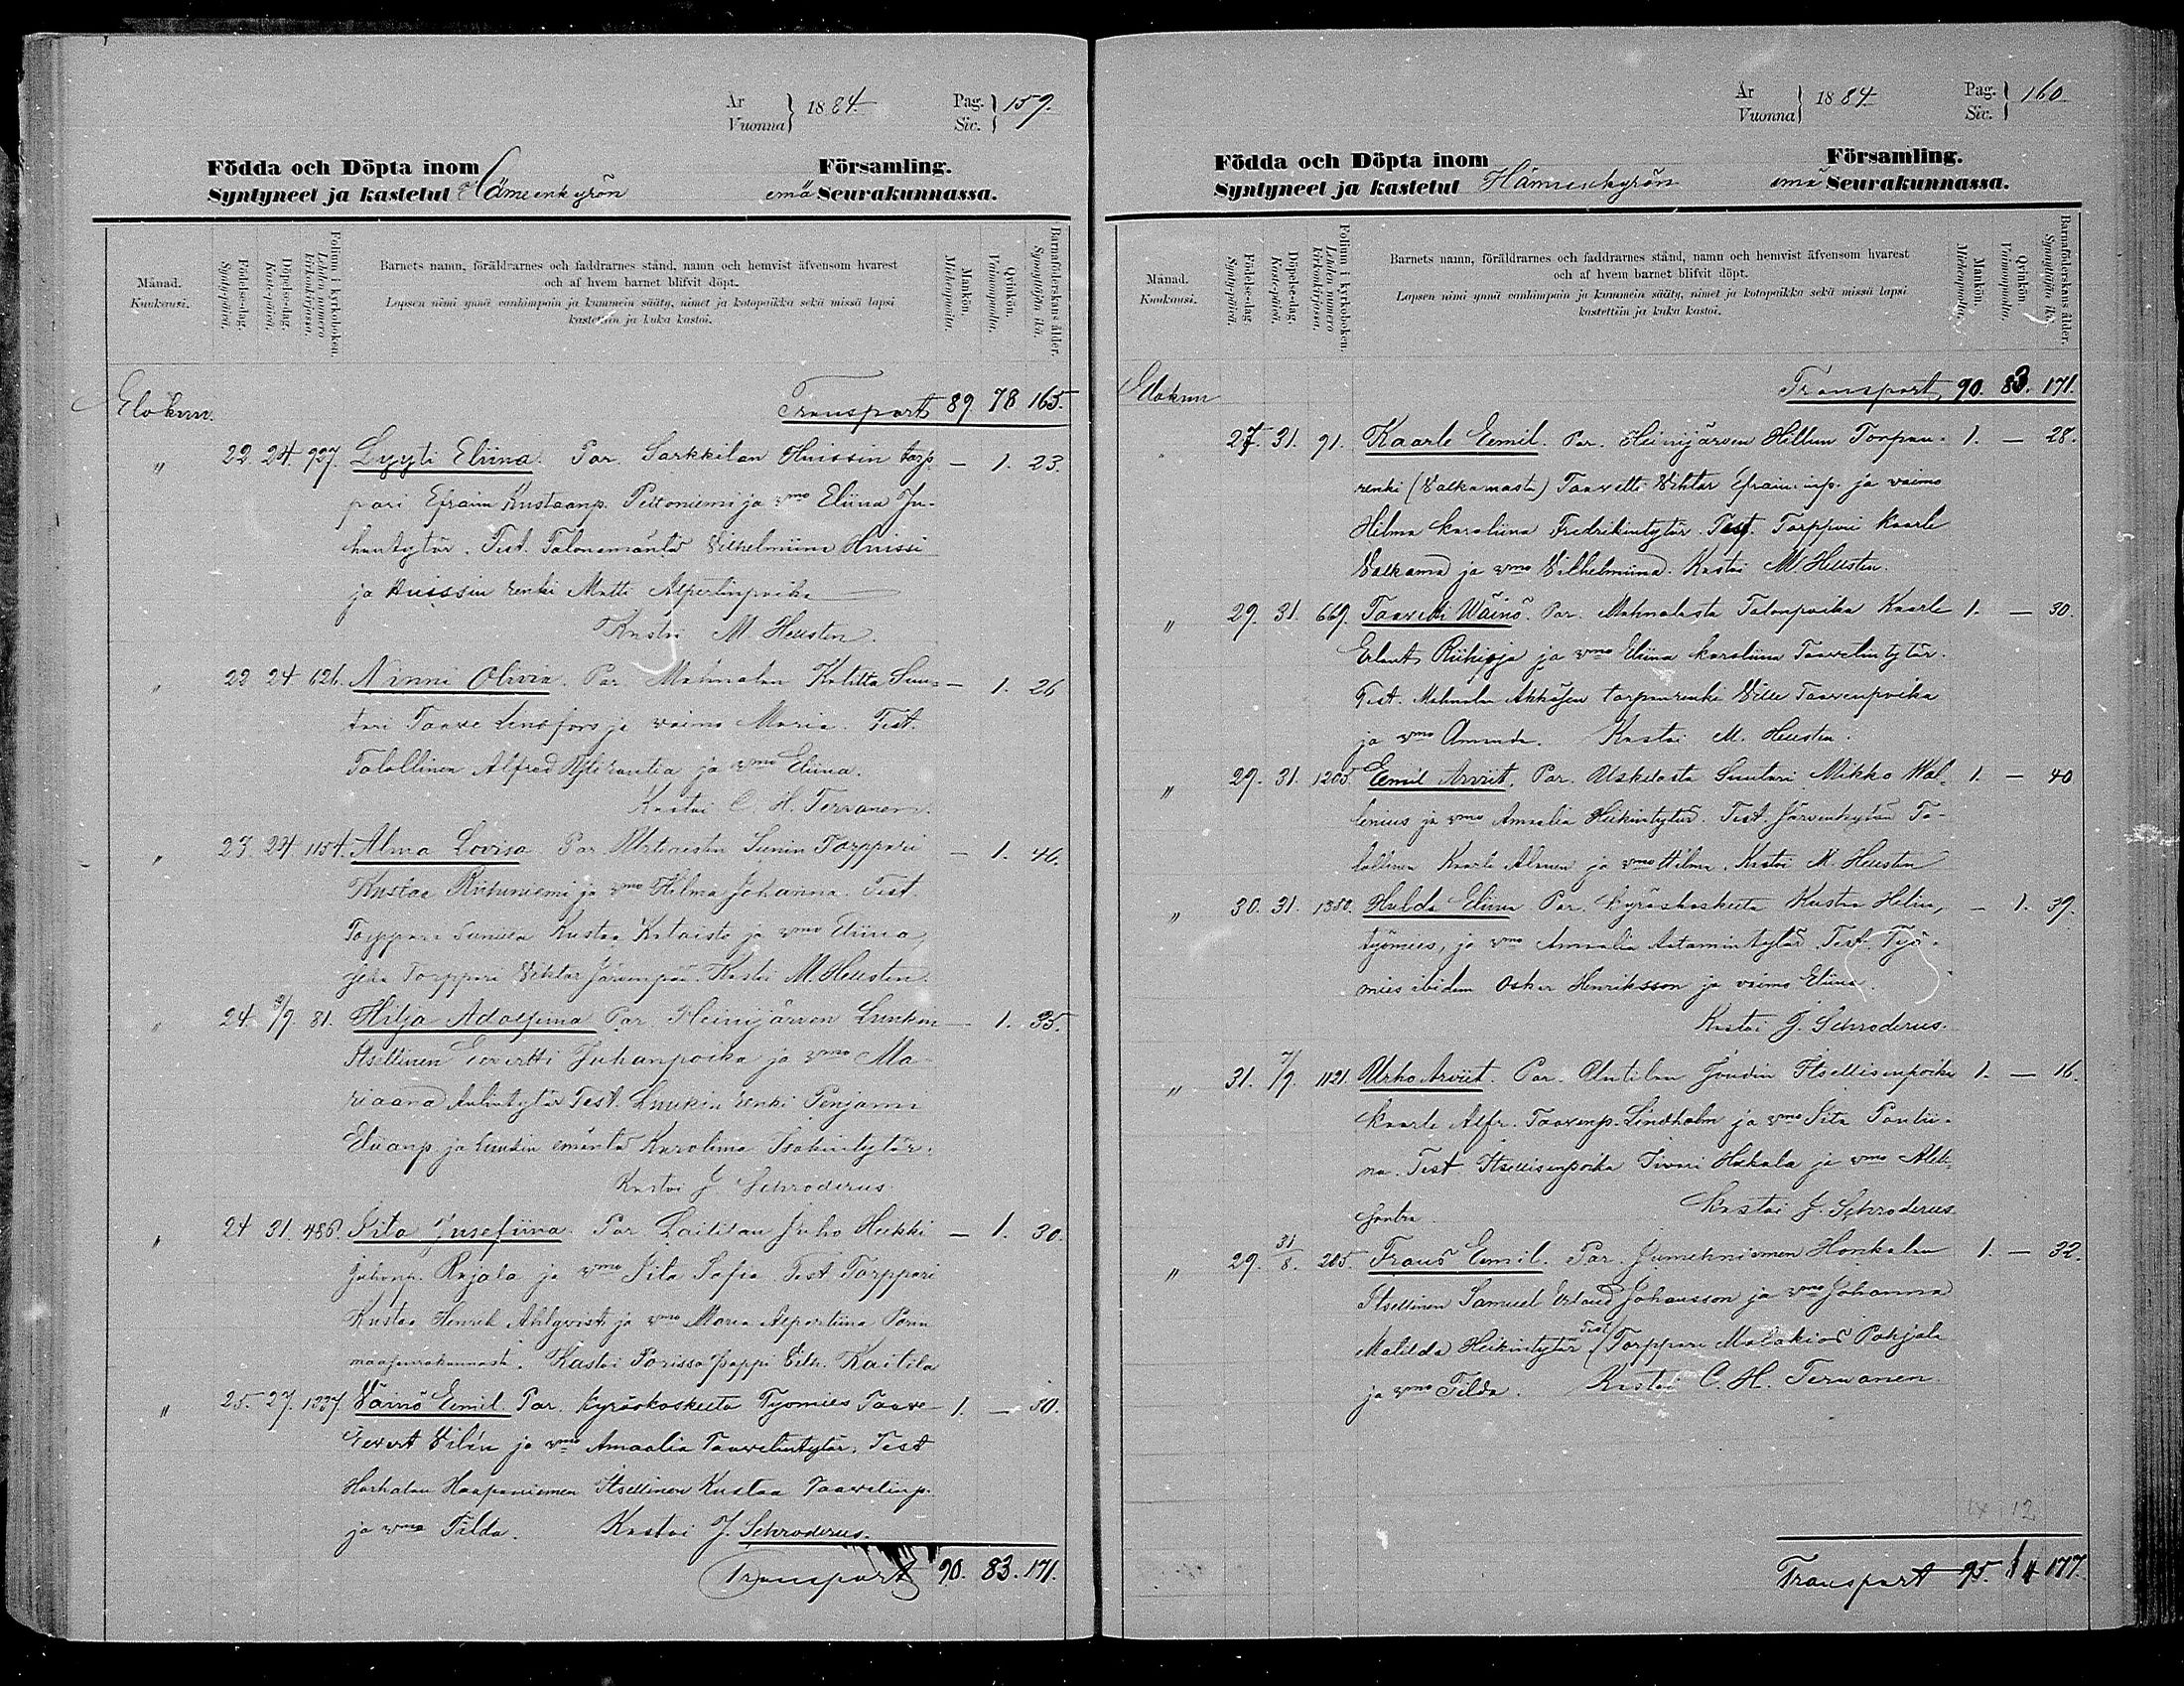 År
Vuonna } 1884. Pag.
Siv. } 159.
Födda och Döpta inom Församling.
Syntyneet ja kastetut Hämeenkyrön emä Seurakunnassa.
Månad.
Kuukausi.
Födelse-dag.
Syntypäivä.
Döpelse-dag.
Kaste-päivä.
Folium i kyrkoboken.
Lehden numero
kirkonkirjassa.
Barnets namn, föräldrarnes och faddrarnes stånd, namn och hemvist äfvensom hvarest
och af hvem barnet blifvit döpt.
Lapsen nimi ynnä vanhimpain ja kummein sääty, nimet ja kotopaikka sekä missä lapsi
kastettiin ja kuka kastoi.
Mankön.
Miehenpuolia.
Qvinkön.
Vaimonpuolia.
Barnaföderskans ålder.
Synnyttäjän ikä.
Elokuu. Transport 89 78 165.
" 22. 24. 927. Lyyti Eliina. Par. Sarkkilan Huissin torp — 1. 23.
pari Efraim Kustaanp. Peltoniemi ja vmo Eliina Ju-
hantytär. Test. Talonemäntä Vilhelmiina Huissi
ja Huissin renki Matti Alpertinpoika
Kastoi M. Heusten.
" 22 24 626. Ninni Olivia. Par. Mahnalan Suu- — 1. 26
tari Taave Linsfors ja vaimo Maria. Test.
Talollinen Alfred ja vmo Eliina.
Kastoi C. H. Terwanen.
" 23. 24 1154. Alma Lovisa Par. Torppari — 1. 46.
Kustaa Riihiniemi ja vmo Hilma Johanna. Test.
Torppari Kustaa Kataisto ja vmo Eliina,
Torppari Viktor Järvenpää. Kastoi M. Heusten.
" 24. 3/9. 81. Hilja Adolfiina Par. Heinijärven Lunkin — 1. 35.
Itsellinen Eevertti Juhanpoika ja vmo Ma-
riaana Test. Lunkin renki Penjami
Eliaanp. ja Lunkin emäntä Karoliina Isakintytär.
Kastoi J. Schroderus.
" 24 31. 486. Iita Jusefiina. Par. Laitilan Juho Heikki — 1. 30.
Juhonp. Rajala ja vmo Iita Sofia. Test. Torppari
Kustaa Henrik Ahlqvist ja vmo Maria Alpertiina Porin
maaseurakunnasta. Kastoi Porissa pappi Vilh. Kaitila
" 25. 27. 1327. Väinö Eemil. Par. Kyröskoskelta Työmies Taave 1. — 30.
Eevert Vilén ja vmo Amaalia Taavetintytär. Test
Harhalan Haapaniemen Itsellinen Kustaa Taavetinp.
ja vmo Tilda. Kastoi J. Schroderus.
Transport 90. 83. 171.
År
Vuonna } 1884. Pag.
Siv. } 160.
Födda och Döpta inom Församling.
Syntyneet ja kastetut Hämeenkyrön emä Seurakunnassa.
Månad.
Kuukausi.
Födelse-dag.
Syntypäivä.
Döpelse-dag.
Kaste-päivä.
Folium i kyrkoboken.
Lehden numero
kirkonkirjassa.
Barnets namn, föräldrarnes och faddrarnes stånd, namn och hemvist äfvensom hvarest
och af hvem barnet blifvit döpt.
Lapsen nimi ynnä vanhimpain ja kummein sääty, nimet ja kotopaikka sekä missä lapsi
kastettiin ja kuka kastoi.
Mankön.
Miehenpuolia.
Qvinkön.
Vaimonpuolia.
Barnaföderskans ålder.
Synnyttäjän ikä.
Elokuu Transport 90. 83. 171.
27. 31. 91. Kaarle Eemil. Par. Heinijärven Hillun Torpan- 1. — 28.
renki (Valkamasta) Taavetti Viktor Efraiminp. ja vaimo
Hilma Karoliina Fredrikintytär. Test. Torppari Kaarle
Valkama ja vmo Vilhelmiina. Kastoi M. Heusten.
" 29. 31. 669. Taavetti Wäinö. Par. Mahnalasta Talonpoika Kaarle 1. — 30.
Erlant Riihioja ja vmo Eliina Karoliina Taavetintytär.
Test. Mahnalan torpanrenki Ville Taavenpoika
ja vmo Amanda. Kastoi M. Heusten.
" 29. 31. 1205. Eemil Arviit. Par. Uskelasta Suutari Mikko Wal- 1. — 40
lenius ja vmo Amaalia Heikintytär. Test. Järvenkylän Ta-
lollinen Kaarle Alanen ja vmo Hilma. Kastoi M. Heusten
" 30. 31. 1380. Hulda Eliina Par. Kyröskoskelta Kustaa Helin, — 1. 39.
työmies, ja vmo Amaalia Aatamintytär. Test. Työ-
mies ibidem Oskar Henriksson ja vaimo Eliina.
Kastoi J. Schroderus.
" 31. 7/9. 1121. Urho Arviit. Par. Itsellisenpoika 1. — 16.
Kaarle Alfr. Taavenp. Lindholm ja vmo Iita Pauli-
na. Test Itsellisenpoika Iivari Hakala ja vmo Alek-
santra. Kastoi J. Schroderus
" 29. 31/8. 205. Frans Eemil. Par. Jumesniemen Honkalan 1. — 32.
Itsellinen Samuel Erland Johansson ja vmo Johanna
Matilda Heikintytär Test Torppari Malakias Pohjala
ja vmo Tilda. Kastoi C. H. Terwanen.
Transport 95. 84 177.